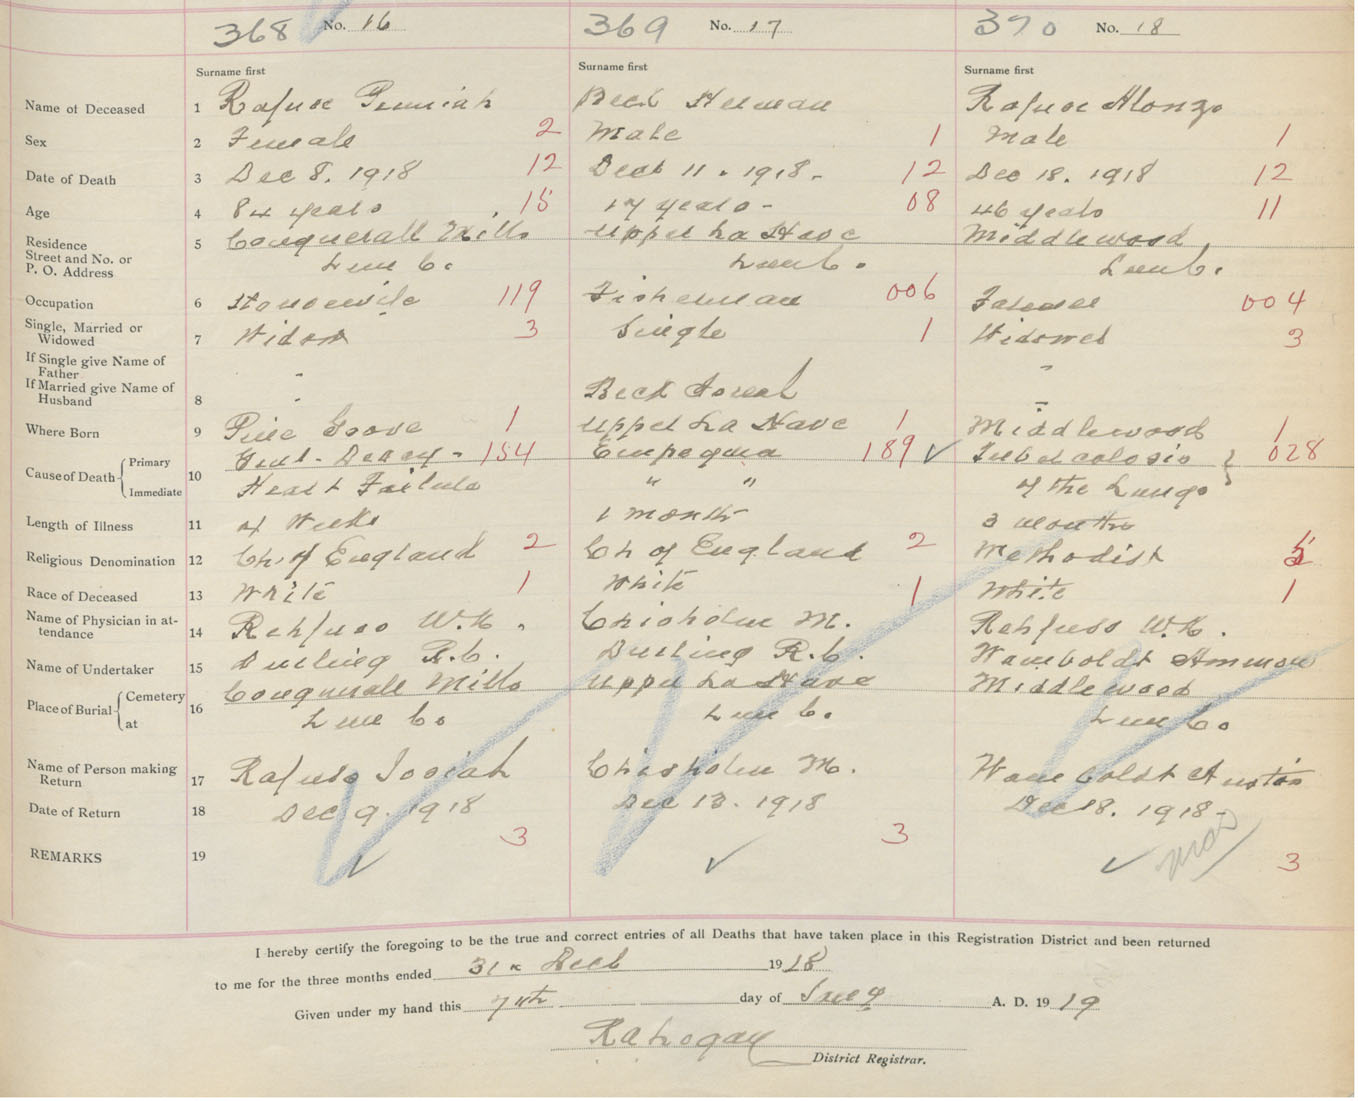 368 No. 16 369 No. 17 370 No. 18
Surname first Surname first Surname first
Name of Deceased 1 Rafuse Beck Herman Rafuse Alonzo
Sex 2 Female 2 Male 1 Male 1
Date of Death 3 Dec 8. 1918 12 Dec 11. 1918. 12 Dec 18. 1918 12
Age 4 84 years 15 17 years - 08 46 years 11
Residence
Street and No. or
P. O. Address
5 Conquerall Mills Upper La Have Middlewood
Lun Co. Lun Co. Lun Co.
Occupation 6 Housewife 119 Fisherman 006 Farmer 004
Single, Married or
Widowed 7 Widow 3 Single 1 Widowed 3
If Single give Name of
Father
If Married give Name of
Husband 8 " Beck " 
Where Born 9 Pine Grove 1 Upper La Have 1 Middlewood 1
Cause of Death { Primary
Immediate 10
Genl - Decay - 154 Empyema 189 ✓ Tuberculosis } 028
Heart Failure " " of the Lungs
Length of Illness 11 4 Weeks 1 month 3 months
Religious Denomination 12 Ch. of England 2 Ch of England 2 Methodist 5
Race of Deceased 13 White 1 White 1 White 1
Name of Physician in at-
tendance 14 Rehfuss W.H. Chisholm M. Rehfuss W.H.
Name of Undertaker 15 Durling R.C. Durling R.C. Wamboldt Ammon
Place of Burial { Cemetery
at 16
Conquerall Mills Upper La Have Middlewood
Lun Co Lun Co. Lun Co.
Name of Person making
Return 17 Rafuse Josiah Chisholm M. Wamboldt Austin
Date of Return 18 Dec 9. 1918 Dec 13. 1918 Dec 18. 1918
REMARKS 19 3 ✓ 3 ✓ ✓ 3
I hereby certify the foregoing to be the true and correct entries of all Deaths that have taken place in this Registration District and been returned
to me for the three months ended 31st Dec 1918
Given under my hand this 7th day of Jany A. D. 1919
District Registrar.